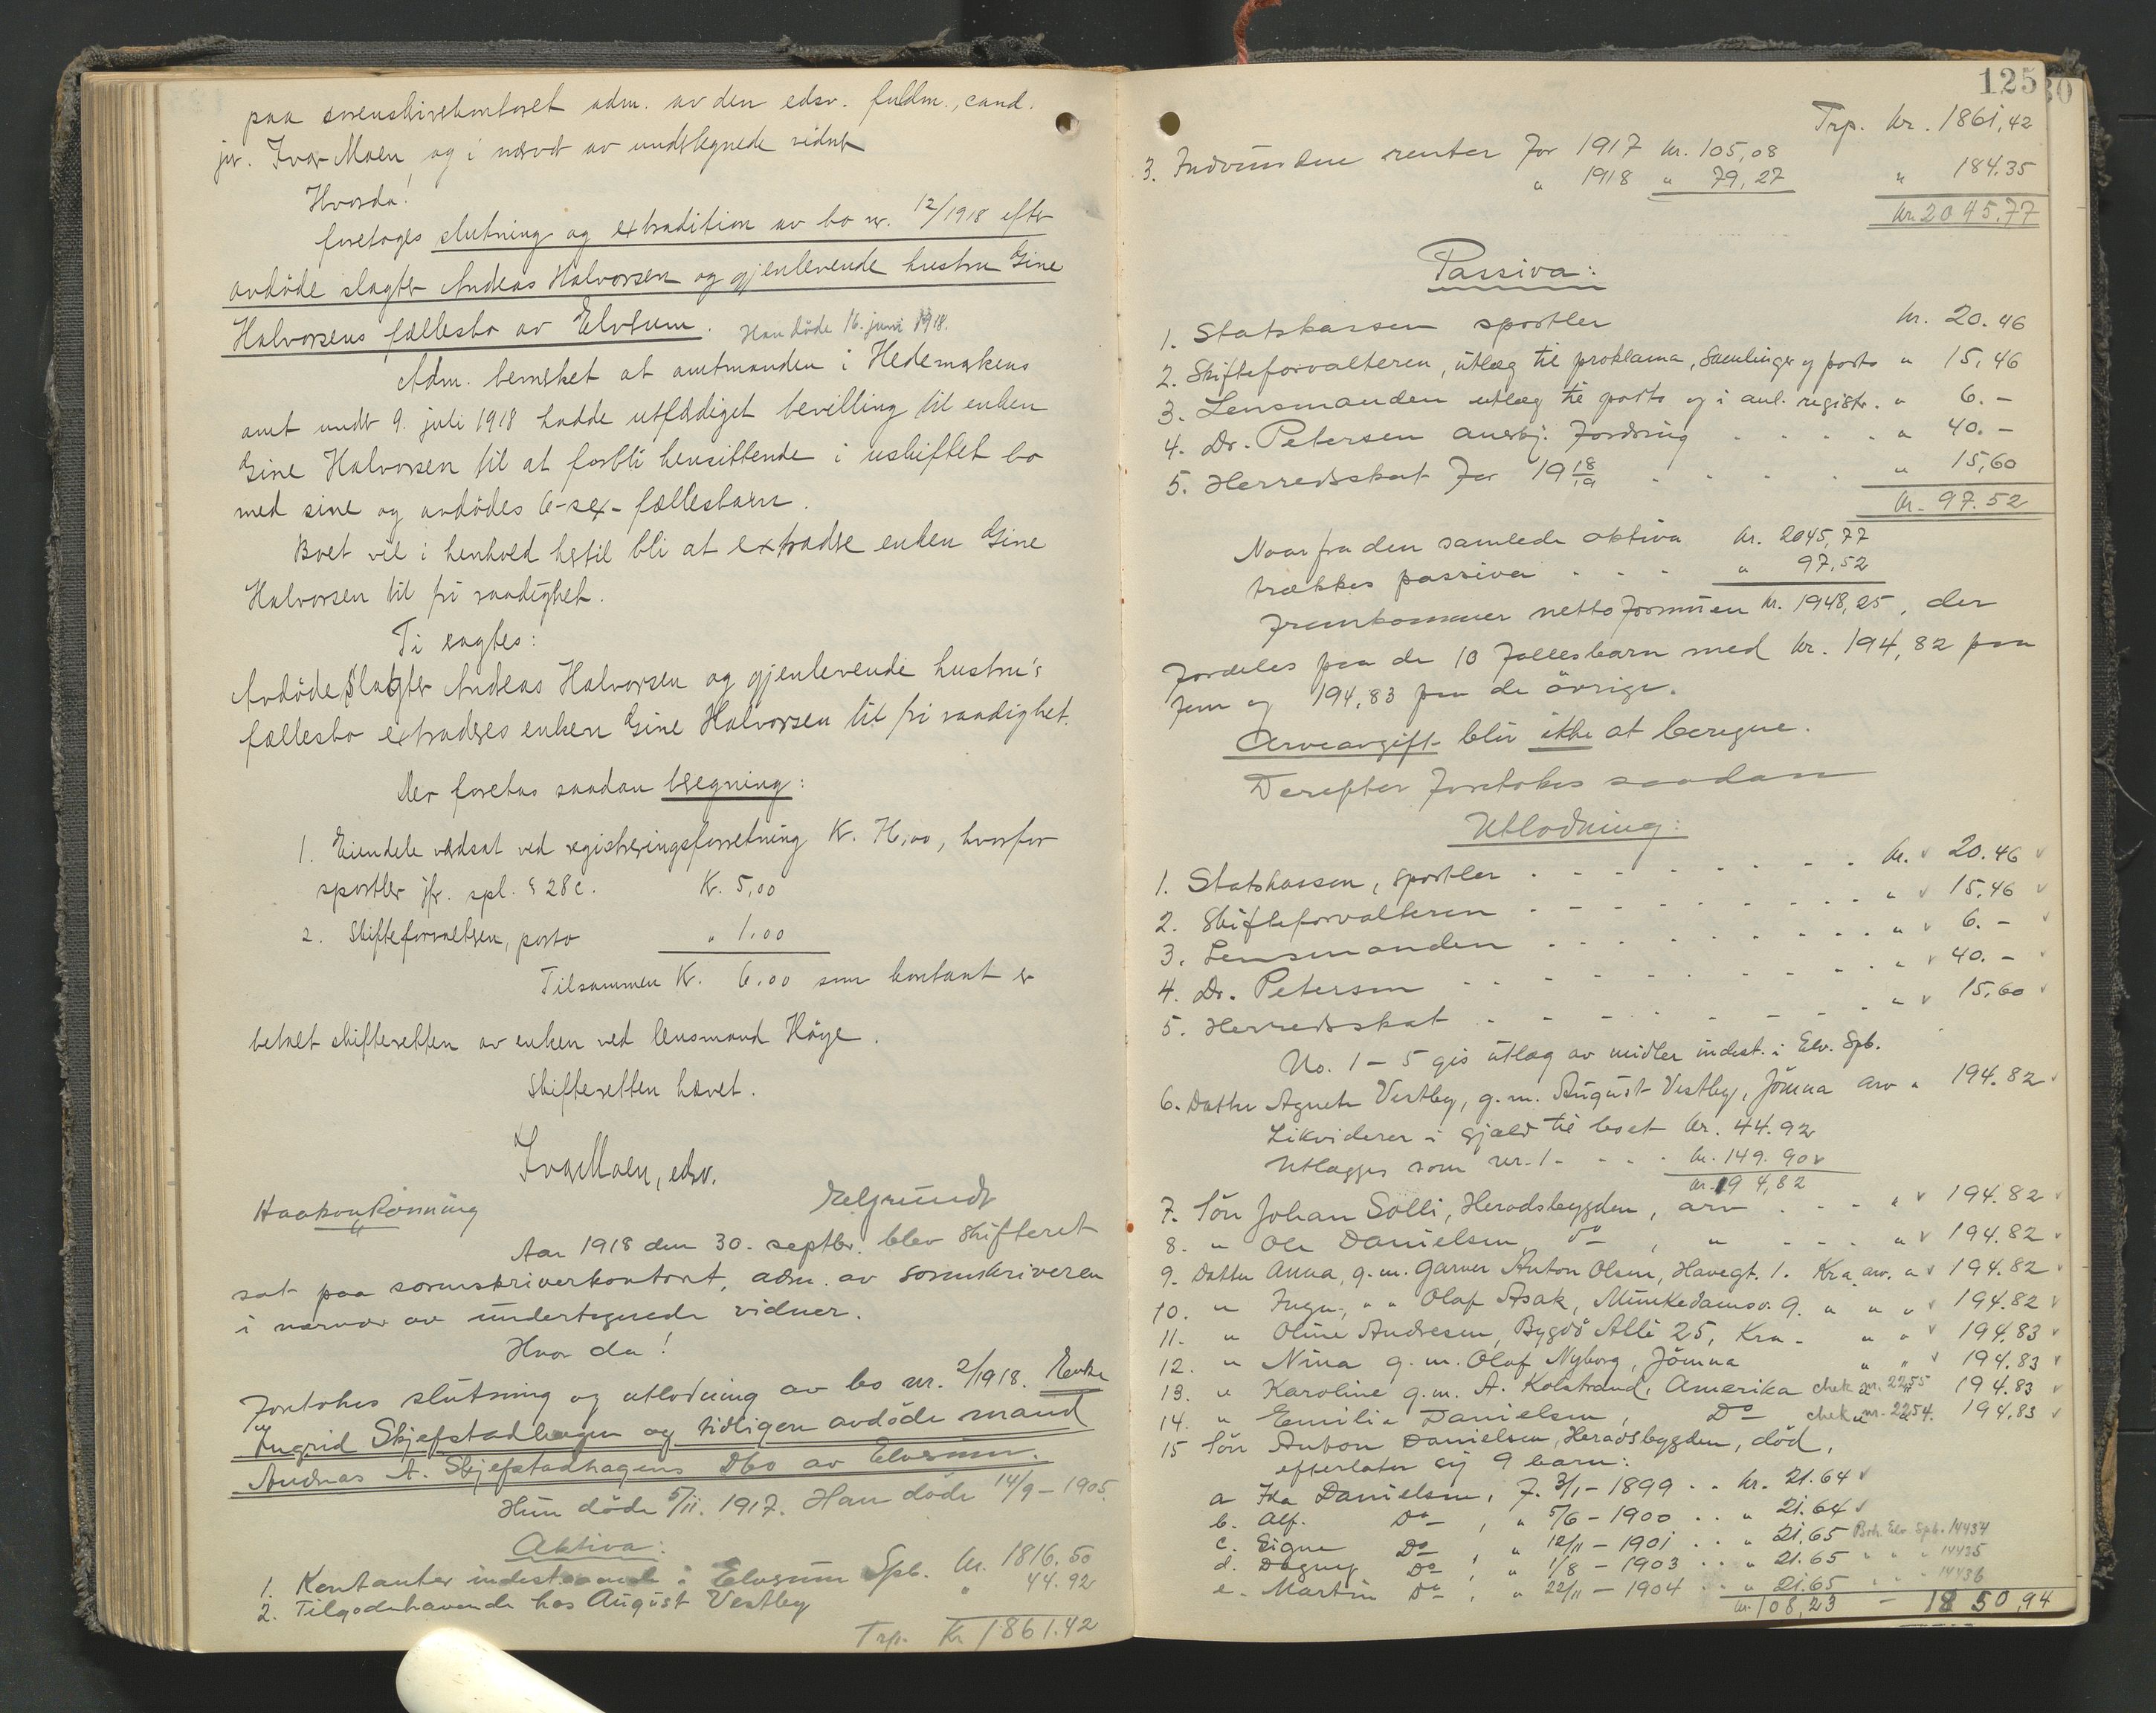 paa sorenskriverkontoret adm. av den edsv. fuldm., cand.
jur. Ivar Moen, og i nærvær av undertegnede vidner
Hvorda!
foretoges slutning og extradition av bo nr. 12/1918 efter
avdöde slagter Andreas Halvorsen og gjenlevende hustru Gine
Halvorsens fællesbo av Elverum. Han döde 16. juni 1918.
Adm. bemerket at amtmanden i Hedemarkens
amt under 9. juli 1918 hadde utfærdiget bevilling til enken
Gine Halvorsen til at forbli hensittende i uskiftet bo
med sine og avdödes 6-sex-fællesbarn.
Boet vil i henhold hertil bli at extradere enken Gine
Halvorsen til fri raadighet.
Ti sagtes:
Avdöde slagter Andreas Halvorsen og gjenlevende hustru's
fællesbo extraderes enken Gine Halvorsen til fri raadighet.
Der foretas saadan beregning:
1. Eiendele værdsat ved registreringsforretning Kr. 76,00, hvorfor
sportler jfr. spl. § 28 c. Kr. 5,00
2. Skifteforvalteren, porto " 1.00
Tilsammen Kr. 6.00 som kontant er
betalt skifteretten av enken ved lensmand Höye.
Skifteretten hævet.
Ivar Moen, edsv.
Haakon Rönning
Aar 1918 den 30. septbr. blev skifteret
sat paa sorenskriverkontoret, adm. av sorenskriveren
i nærvær av undertegnede vidner.
Hvor da!
Foretokes slutning og utlodning av bo nr. 2/1918. Enke
Ingrid Skjefstadhagen og tidligere avdöde mand
Andreas A. Skjefstadhagens Dbo av Elverum.
Hun döde 5/11. 1917. Han döde 14/9-1905.
Aktiva:
1. Kontanter indestaaende i Elverum Spb. kr. 1816.50
2. Tilgodehavende hos August Vestby " 44.92
Trp. Kr 1861.42
125
Trp. kr. 1861,42
3. Indvundne renter for 1917 kr. 105,08
" 1918 " 79,27 " 184.35
kr. 2045,77
Passiva:
1. Statskassen sportler kr. 20.46
2. Skifteforvalteren, utlæg til proklama, Samlinger og porto " 15,46
3. Lensmanden utlæg til porto og i anl. registr. " 6.-
4. Dr. Petersen anerkj. fordring . . . . " 40.-
5. Herredsskat for 1918/19 . . . . " 15,60
kr. 97.52
Naar fra den samlede aktiva kr. 2045,77
trækkes passiva . . . " 97,52
fremkommer nettoformuen kr. 1948,25, der
fordeles paa de 10 fællesbarn med kr. 194,82 paa
fem og 194,83 paa de övrige.
Arveavgift blir ikke at beregne.
Derefter foretokes saadan
Utlodning:
1. Statskassen, sportler . . . . kr. 20.46
2. Skifteforvalteren . . . . " 15,46
3. Lensmanden . . . . " 6.-
4. Dr. Petersen . . . . " 40.-
5. Herredsskat . . . . " 15,60
No. 1-5 gis utlæg av midler indest. i Elv. Spb.
6. Datter Agnete Vestby, g.m. August Vestby, Jömna arv " 194.82
Likviderer i gjæld til boet kr. 44.92
Utlægges som nr. 1. . . . kr. 149.90
kr. 194,82
7. Sön Johan Solli, Heradsbygden, arv . . . " 194.82
8. " Ole Danielsen do , " . . . " 194.82
9. Datter Anna, g.m. garver Anton Olsen, Havegt. 1. Kra. arv. " 194.82
10. " , " " Olaf Asak, Munkedamsv. 9. " " " 194.82
11. " Oline Andresen, Bygdö Allè 25, Kra. " " 194.83
12. " Nina g.m. Olaf Nyborg, Jömna " " 194.83
13. " Karoline g.m. A. Kolstrand, Amerika chek nr. 2255 " 194.83
14. " Emilie Danielsen, Do chek nr. 2254. " 194.83
15 Sön Anton Danielsen, Heradsbygden, död,
efterlater sig 9 barn:
a Ida Danielsen, f. 3/1-1899 . . kr. 21.64
b. Alf. Do , " 5/6-1900 . . " 21.64
c. Signe Do , " 12/11-1901 . . " 21.65 Bok. Elv. Spb. 14434
d. Dagny Do , " 1/8-1903 . . " 21.65 " " " 14435
e. Martin Do , " 22/11-1904 . . " 21.65 " " " 14436
kr. 108,23 - 1850,94